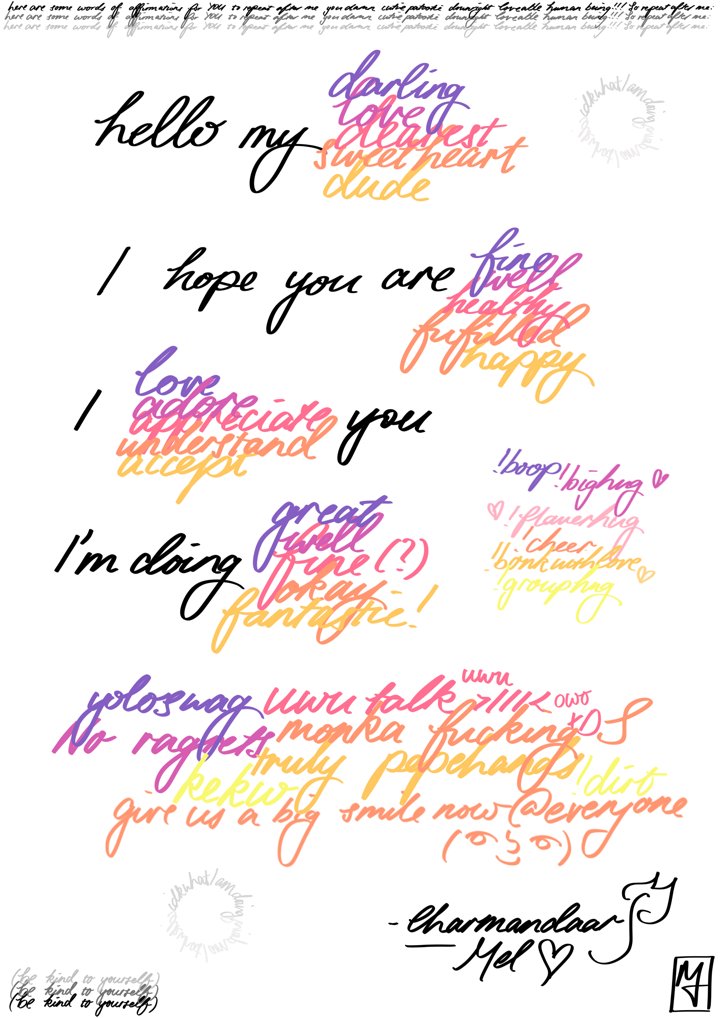 here are some words of affirmation for YOU to repeat after me you damn cutie patootie downright loveable human being!!! So repeat after me:
here are some words of affirmation for YOU to repeat after me you damn cutie patootie downright loveable human being!!! So repeat after me:
here are some words of affirmation for YOU to repeat after me you damn cutie patootie downright loveable human being!!! So repeat after me:
hello my
darling
love
dearest
sweetheart
dude
I hope you are
fine
well
healthy
fulfilled
happy
I
love
adore
appreciate
understand
accept
you
!boop !bighug ♡
♡ !flowerhug
!cheer
!bonkwithlove ♡
!grouphug
I'm doing
great
well
fine (?)
okay
fantastic!
yoloswag uwu talk >////< uwu owo xD
No ragrets monka fucking S
truly pepehands
kekw !dirt
give us a big smile now @everyone
( ͡° ͜ʖ ͡°)
- Charmandaar
Mel ♡
(be kind to yourself)
(be kind to yourself)
(be kind to yourself)